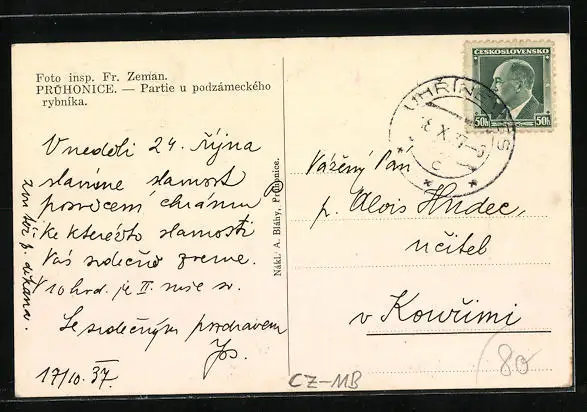 Foto insp. Fr. Zeman.
PRŮHONICE. — Partie u podzámeckého
rybníka.
V neděli 24. října
slavíme slavnost
posvěcení chrámu
ke kteréžto slavnosti
Vás srdečně zveme.
V 10 hod. je II. mše sv.
Se srdečným pozdravem
17/10. 37.
Nákl. A. Bláhy, Průhonice.
ČESKOSLOVENSKO
50h 50h
UHŘÍNĚVES
X. 37
C
Vážený Pan
p. Alois Hudec,
učitel
v Kouřimi
80
CZ-MB